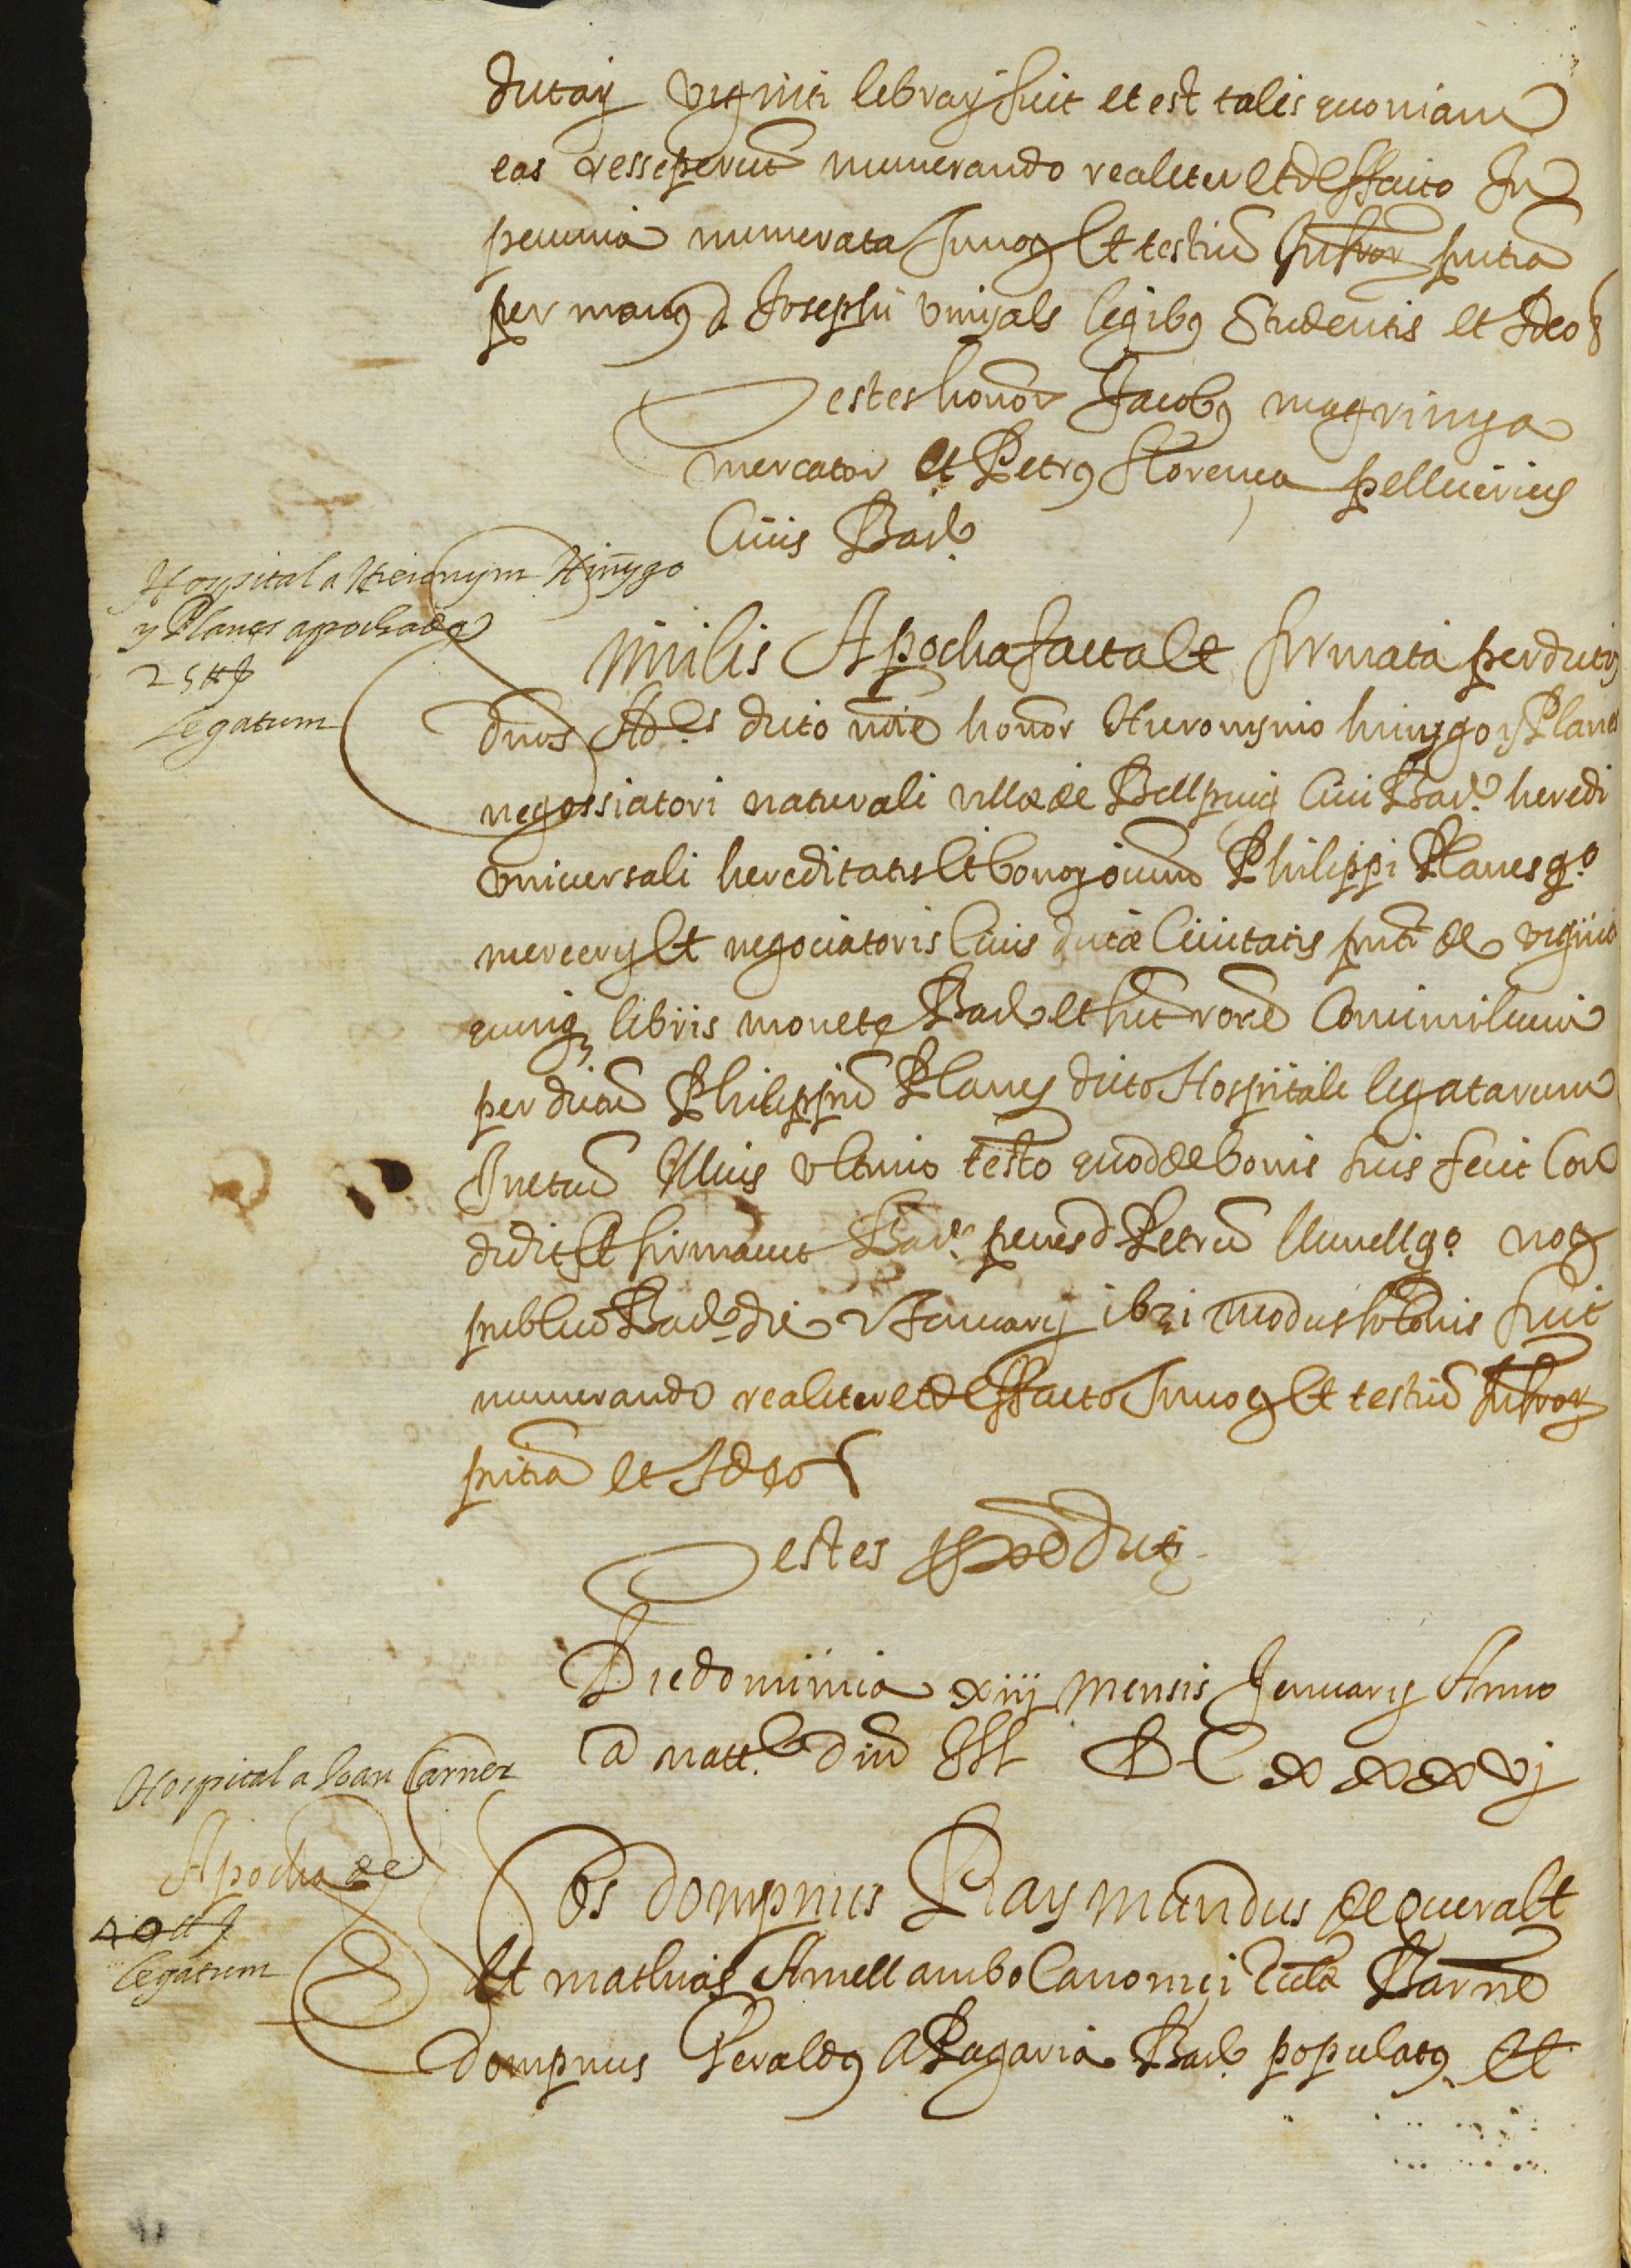 dictaꝝ viginti libraꝝ fuit et est talis quoniam
eas resseperut numerando realiter et de ffacto In
pecunia numerata Innoꝝ Et testiu infrꝝ pntia
per manꝰ d Josephi vinyals legibꝰ Studentis et Ideo
Testes honor Jacobꝰ magrinya
mercator et Petrꝰ Florensa pelliceriꝰ
Ciuis Barꝰ
Hospital a Hieronym Hinygo
y Planes apocha de
25 ₶
Legatum
Similis Apocha facta Et firmata per dictos
dnos Ad.es dicto noie honor Hieronymo hinygo y Planes
negossiatori naturali villæ de Bellpuig Ciui Barꝰ heredi
vniuersali hereditatis Et bonoꝝ oium Philippi Planes qº
mercerij Et negociatoris Ciuis dictæ Ciuitatis pnti de viginti
quinqꝫ libris monetę Barꝰ et sut ratione Consimilium
per dictu Philippu Planes dicto Hospitali legatarum
In et cu illius vltimo testo quod de bonis suis fecit Con
didit Et firmauit Barꝰ penes d Petru llunell qº not
publicu Barꝰ die v Januarij 1631 modus solonis fuit
numerando realiter et de ffacto Innoꝝ Et testiu infroꝝ
pntia et Ideo
Testes proxe dicti
Die dominica xiij mensis Januarij Anno
a natte Dni M DCxxxvj
Hospital a Joan Carner
Apocha de
40 ₶
Legatum
Nos dompnus Raymundus de queralt
Et mathias Amell ambo Canonici Eccle Barne
dompnus Geraldꝰ A Paguaria Barꝰ populatꝰ Et